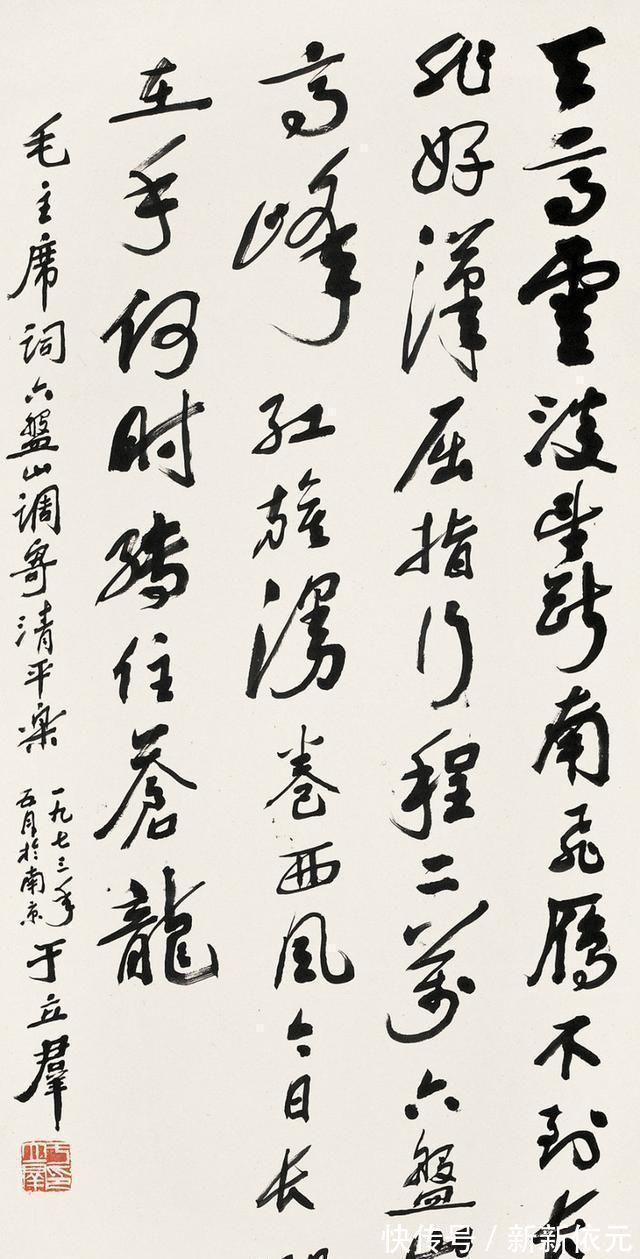 天高雲淡望斷南飛雁不到长
非好漢屈指行程二萬六盤
高峰红旗漫卷西风今日长
在手何时縛住蒼龍
毛主席詞六盤山調寄清平樂
一九七三年
五月於南京
于立羣
快传号 / 新新依元